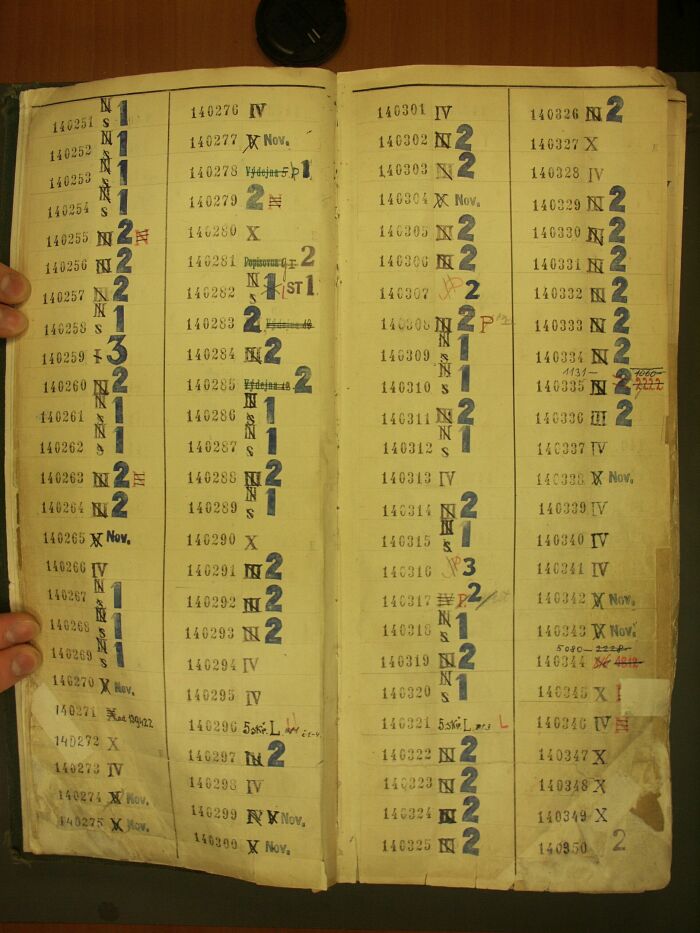 140251 N s 1
140252 N s 1
140253 N s 1
140254 N s 1
140255 III 2 III
140256 III 2
140257 III 2
140258 N s 1
140259 I 3
140260 III 2
140261 N s 1
140262 N s 1
140263 III 2 III
140264 III 2
140265 X Nov.
140266 IV
140267 N s 1
140268 N s 1
140269 N s 1
140270 X Nov.
140271 139422
140272 X
140273 IV
140274 X Nov.
140275 X Nov.
140276 IV
140277 X Nov.
140278 Výdejna 5 P 1
140279 2 III
140280 X
140281 Popisovna 2
140282 N s 1 ST 1
140283 2 Výdejna 18
140284 III 2
140285 Výdejna 18 2
140286 N s 1
140287 N s 1
140288 III 2
140289 N s 1
140290 X
140291 III 2
140292 III 2
140293 III 2
140294 IV
140295 IV
140296 5.skř. L č.1-4
140297 III 2
140298 IV
140299 IV X Nov.
140300 X Nov.
140301 IV
140302 III 2
140303 III 2
140304 X Nov.
140305 III 2
140306 III 2
140307 JP 2
140308 III 2 P
140309 N s 1
140310 N s 1
140311 III 2
140312 N s 1
140313 IV
140314 III 2
140315 N s 1
140316 JP 3
140317 IV P. 2
140318 N s 1
140319 III 2
140320 N s 1
140321 5.skř. L L
140322 III 2
140323 III 2
140324 III 2
140325 III 2
140326 III 2
140327 X
140328 IV
140329 III 2
140330 III 2
140331 III 2
140332 III 2
140333 III 2
140334 III 2
1131 — 1060
140335 III 2 2222
140336 III 2
140337 IV
140338 X Nov.
140339 IV
140340 IV
140341 IV
140342 X Nov.
140343 X Nov.
5080 — 2228
140344 4812
140345 X I
140346 IV III
140347 X
140348 X
140349 X
140350 2